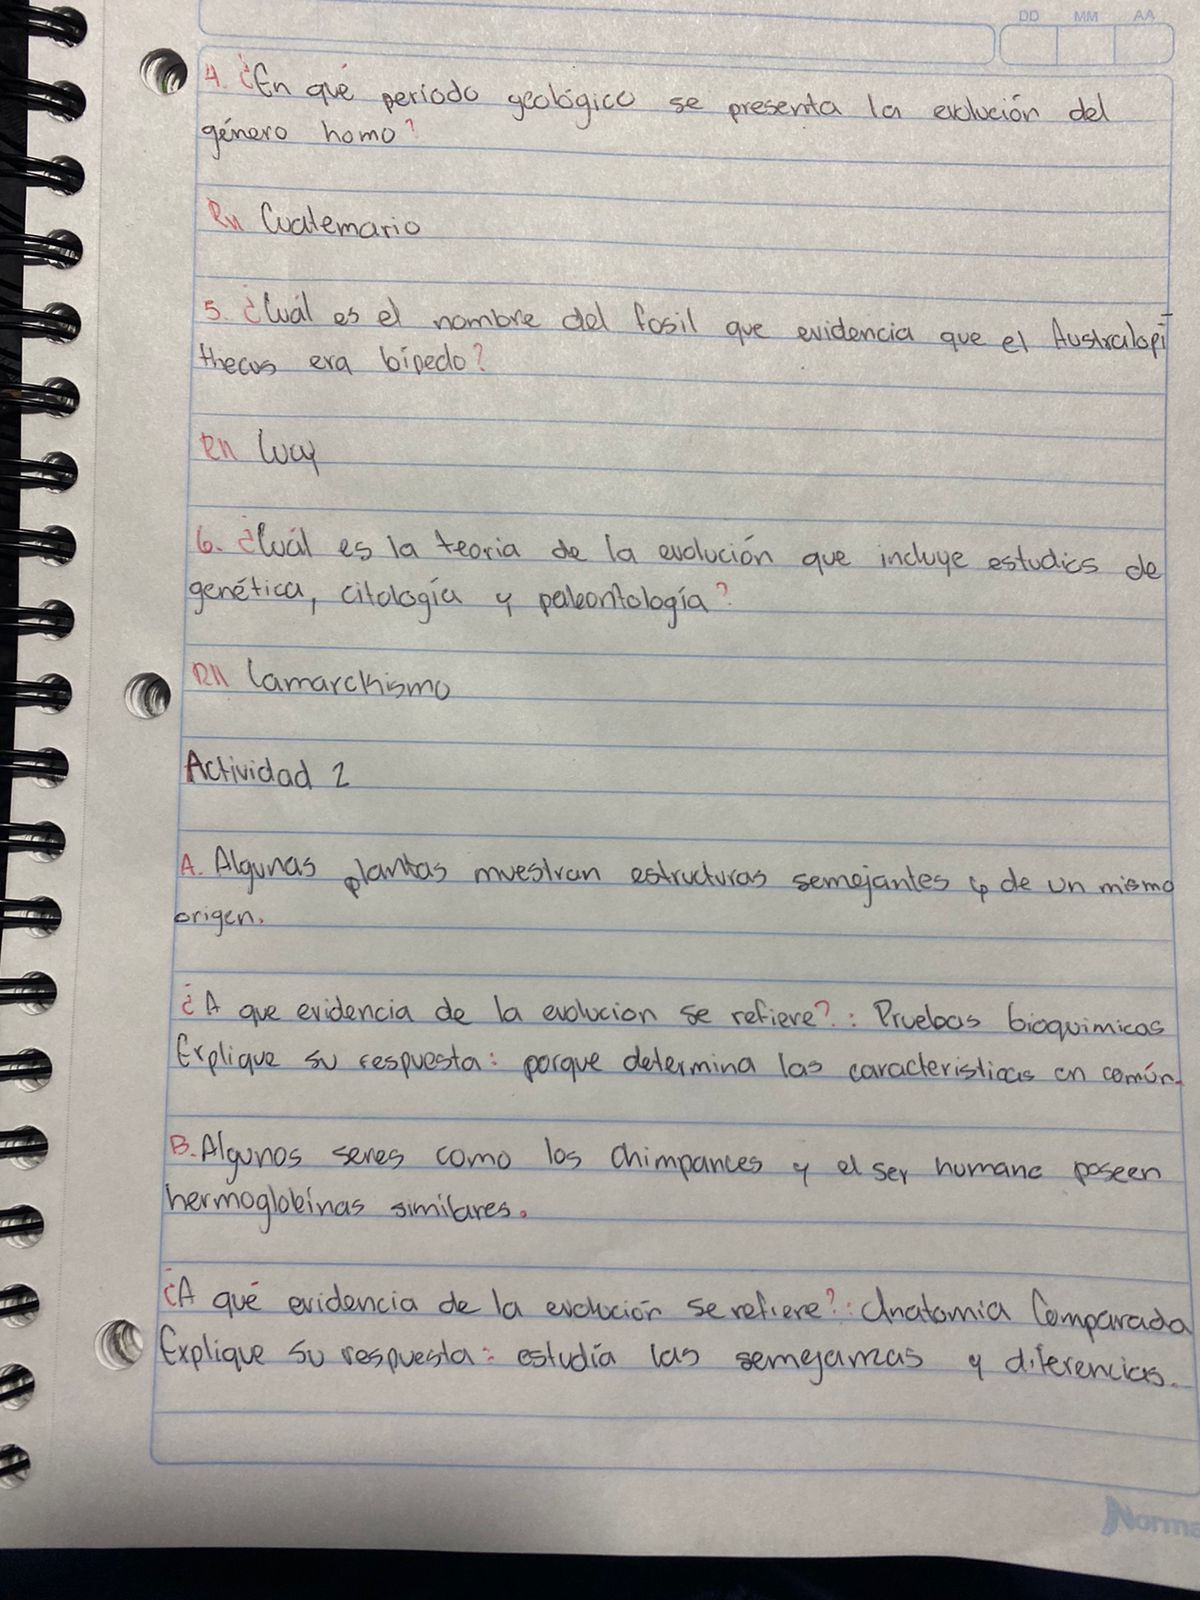 DD MM AA
4. ¿En qué período geológico se presenta la evolución del
género homo?
R// Cuaternario
5. ¿Cuál es el nombre del fosil que evidencia que el Australopi
thecus era bípedo?
R// Lucy
6. ¿Cuál es la teoria de la evolución que incluye estudios de
genética, citología y paleontología?
R// Lamarckismo
Actividad 2
A. Algunas plantas muestran estructuras semejantes y de un mismo
origen.
¿A que evidencia de la evolucion se refiere?: Pruebas bioquimicas
Explique su respuesta: porque determina las caracteristicas en común.
B. Algunos seres como los chimpances y el ser humano poseen
hermoglobinas similares.
¿A qué evidencia de la evolución se refiere?: Anatomia Comparada
Explique su respuesta: estudia las semejanzas y diferencias.
Norma